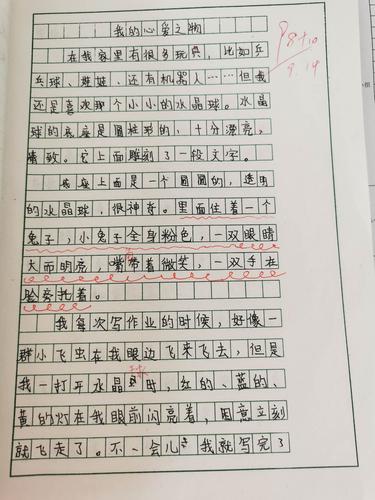 我的心爱之物
在我家里有很多玩具，比如乒
乓球、娃娃、还有机器人……但我
还是喜欢那个小小的水晶球。水晶
球的底座是圆柱形的，十分漂亮、
精致。它上面雕刻了一段文字。
底座上面是一个圆圆的，透明
的水晶球，很神奇。里面住着一个
兔子，小兔子全身粉色，一双眼睛
大而明亮，嘴带着微笑，一双手在
脸旁托着。
我每次写作业的时候，好像一
群小飞虫在我眼边飞来飞去，但是
我一打开水晶球时，红的、蓝的、
黄的灯在我眼前闪亮着，困意立刻
就飞走了。不一会儿我就写完了
9.14